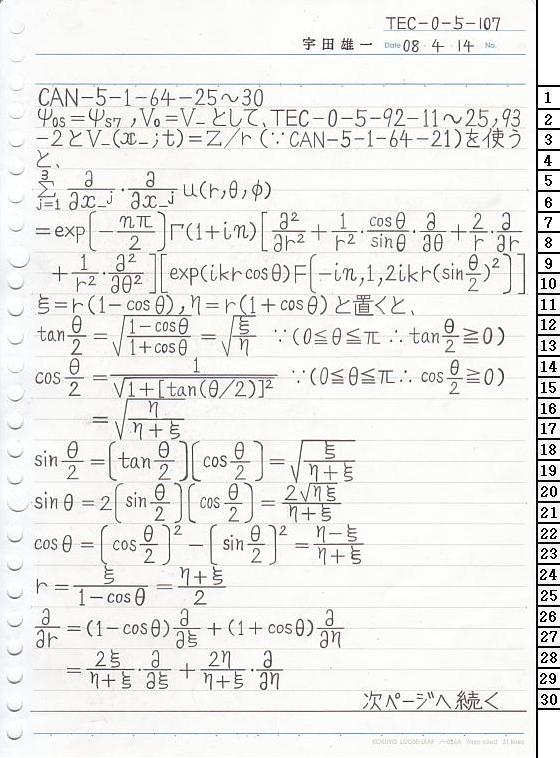 TEC-0-5-107
宇田雄一 Date 08・4・14 No.
CAN-5-1-64-25~30
Ψ₀s=Ψs7, V₀=V_として、TEC-0-5-92-11~25, 93
-2とV_(x_;t)=Z/r (∵CAN-5-1-64-21)を使う
と、
Σ_{j=1}^{3} ∂/∂x_^j・∂/∂x_^j u(r,θ,φ)
=exp[-nπ/2]Γ(1+in)[∂²/∂r² + 1/r²・cosθ/sinθ・∂/∂θ + 2/r・∂/∂r
+ 1/r²・∂²/∂θ²][exp(ikr cosθ)F[-in,1,2ikr(sin θ/2)²]]
ξ=r(1-cosθ), η=r(1+cosθ) と置くと、
tan θ/2 = √((1-cosθ)/(1+cosθ)) = √(ξ/η) ∵(0≦θ≦π ∴tan θ/2 ≧0)
cos θ/2 = 1/√(1+[tan(θ/2)]²) ∵(0≦θ≦π ∴cos θ/2 ≧0)
= √(η/(η+ξ))
sin θ/2 = [tan θ/2][cos θ/2] = √(ξ/(η+ξ))
sinθ = 2[sin θ/2][cos θ/2] = 2√(ηξ)/(η+ξ)
cosθ = [cos θ/2]² - [sin θ/2]² = (η-ξ)/(η+ξ)
r = ξ/(1-cosθ) = (η+ξ)/2
∂/∂r = (1-cosθ)∂/∂ξ + (1+cosθ)∂/∂η
= 2ξ/(η+ξ)・∂/∂ξ + 2η/(η+ξ)・∂/∂η
次ページへ続く
KOKUYO LOOSE-LEAF ノ-836A 7mm ruled 31 lines
1
2
3
4
5
6
7
8
9
10
11
12
13
14
15
16
17
18
19
20
21
22
23
24
25
26
27
28
29
30